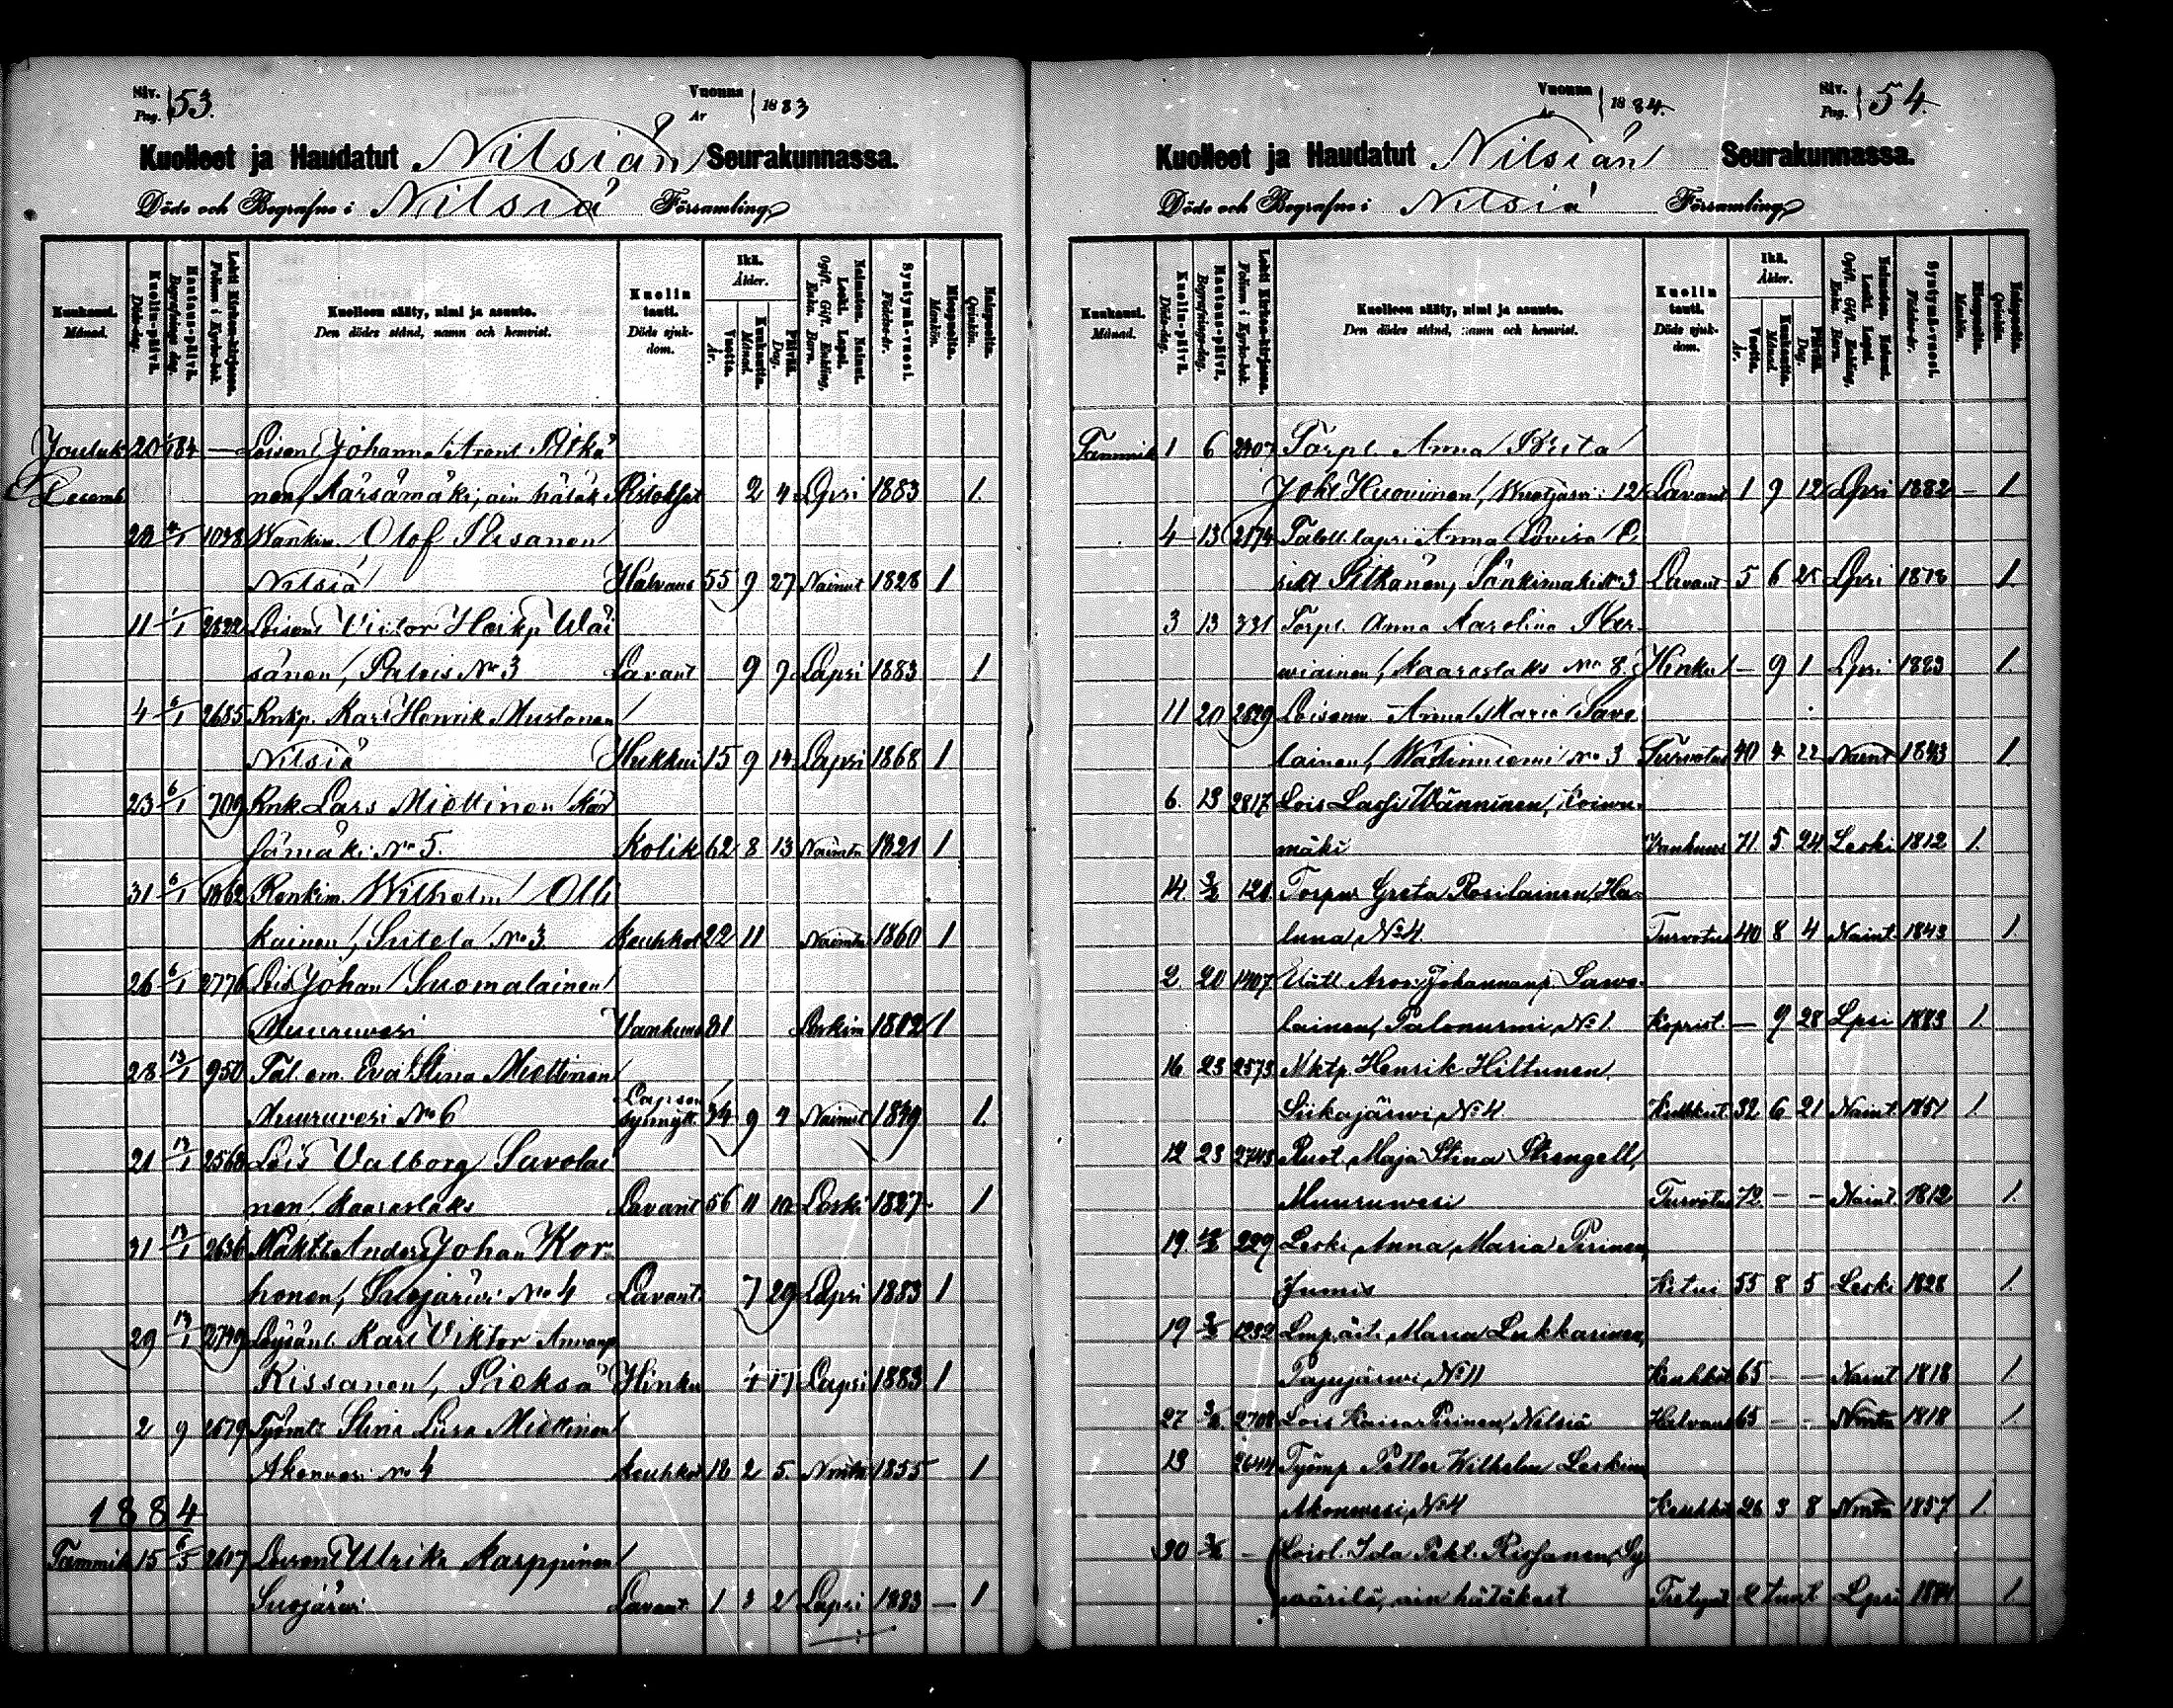 Siv. Pag. 53.
Vuonna År 1883
Kuolleet ja Haudatut Nilsiän Seurakunnassa.
Döde och Begrafne i Nilsiä Församling
Kuukausi. Månad.
Kuolin-päivä. Döds-dag.
Hautaus-päivä. Begrafnings-dag.
Lehti Kirkon-kirjassa. Folium i Kyrko-bok.
Kuolleen sääty, nimi ja asunto. Den dödes stånd, namn och hemvist.
Kuolin tauti. Döds sjukdom.
Ikä. Ålder.
Vuotta. År.
Kuukautta. Månad.
Päivää. Dag.
Naimaton. Nainut. Leski. Lapsi. Ogift. Gift. Enkling, Enka. Barn.
Syntymä-vuosi. Födelse-år.
Miespuolta. Mankön.
Vaimopuolta. Qvinkön.
Jouluk 20 184 — Loisenl Johanna Pitkä
Decemb nen, Kärsämäki, ain hätäk 2 4 Lpsi 1883 1.
1078 Olof
Nilsiä Halvaus 55 9 27 Nainut 1828 1
11 1/1 2822 Loisenl Victor Heikp Wäi
sänen, Palois No 3 Lavant 9 7 Lapsi 1883 1
4 6/1 2685 Rnkp. Karl Henrik Mustonen
Nilsiä Hukkui 15 9 14 Lapsi 1868 1
23 6/1 709 Rnk Lars Miettinen
No 5. Kolik 62 8 13 1821 1
31 6/1 1862 Renkim. Wilhelm Olli
kainen, Siitela No 3 Keuhkot 22 11 1860 1
26 6/1 2776 Lois Johan Suomalainen
Muuruvesi Vanhuus 81 Leskim 1802 1
28 13/1 950 Tal. em. Eva Stina Miettinen
Muuruvesi No 6 Lapsen synnytt. 34 9 4 Nainut 1849 1.
21 13/1 2568 Lois Valborg Savolai
nen, Kaaraslaks Lavant 56 11 10 Leski 1827 1
31 13/1 2636 Anders Johan Kor
honen, Suojärwi No 4 Lavant 7 29 Lapsi 1883 1
29 13/1 2749 Karl Viktor Annanp
Kissanen, Pieksä Hinku 4 17 Lapsi 1883 1
2 9 1679 Stina Liisa Miettinen
Akonvesi No 4 Keuhkot 2 5. 1855 1
1884
Tammik 15 6/5 2617 Loisenl Ulrika Karppinen
Suojärwi Lavant 1 3 2 Lapsi 1883 — 1
Vuonna År 1884.
Siv. Pag. 54.
Kuolleet ja Haudatut Nilsiän Seurakunnassa.
Döde och Begrafne i Nilsiä Församling
Kuukausi. Månad.
Kuolin-päivä. Döds-dag.
Hautaus-päivä. Begrafnings-dag.
Lehti Kirkon-kirjassa. Folium i Kyrko-bok.
Kuolleen sääty, nimi ja asunto. Den dödes stånd, namn och hemvist.
Kuolin tauti. Döds sjukdom.
Ikä. Ålder.
Vuotta. År.
Kuukautta. Månad.
Päivää. Dag.
Naimaton. Nainut. Leski. Lapsi. Ogift. Gift. Enkling, Enka. Barn.
Syntymä-vuosi. Födelse-år.
Miespuolta. Mankön.
Vaimopuolta. Qvinkön.
Tammik 1 6 2407 Torpl. Anna Brita
Joht Huovinen, Wuotjärvi 12 Lavant 1 9 12 Lpsi 1882 — 1.
4 13 2174 Taloll. lapsi Anna Lovisa E
rikt Pitkänen, Sänkimäki No 3 Lavant 5 6 25 Lpsi 1878 1.
3 13 331 Torpl. Anna Karolina Her-
wiainen, Kaaraslaks No 8. Hinku — 9 1 Lpsi 1883 1.
11 20 2629 Anna Maria Savo
lainen, Wäätinniemi No 3 Turvotus 40 4 22 Naint 1843 1.
6. 13 2817 Lois Lassi Wänninen, Koivu-
mäki Vanhuus 71. 5 24 Leski 1812 1.
14. 3/2 121. Greta Rosilainen, Ha-
luna No 4. Turvotus 40 8 4 Naint. 1843 1.
2 20 1407 Aron Johannanp. Sawo-
lainen, Palonurmi No 1. — 9 28 Lpsi 1883 1.
16 23 2573 Nktp Henrik Hiltunen,
Siikajärwi No 4 32 6 21 Naint. 1851 1.
12 23 2743 Ruot. Maja Stina Strengell,
Muuruwesi Turvotus 72. — — Naint. 1812 1.
19. 229 Leski Anna Maria Pirinen,
Jumis Kitui 55 8 5 Leski 1828 1.
19 1232 Maria Lukkarinen,
Pajujärwi No 11 Keuhkot 65 — — Naint 1818 1.
27 2708 Lois Kaisa Pirinen, Nilsiä Halvaus 65 — — 1818 1.
13 2644 Työmp Petter Wilhelm Leskinen
Akonwesi No 4 Keuhkot 26 3 8 1857 1.
30 — Loisl. Ida Pekt. Rissanen, Sy
wärilä, ain hätäkast 2 tunt Lpsi 1884 1.